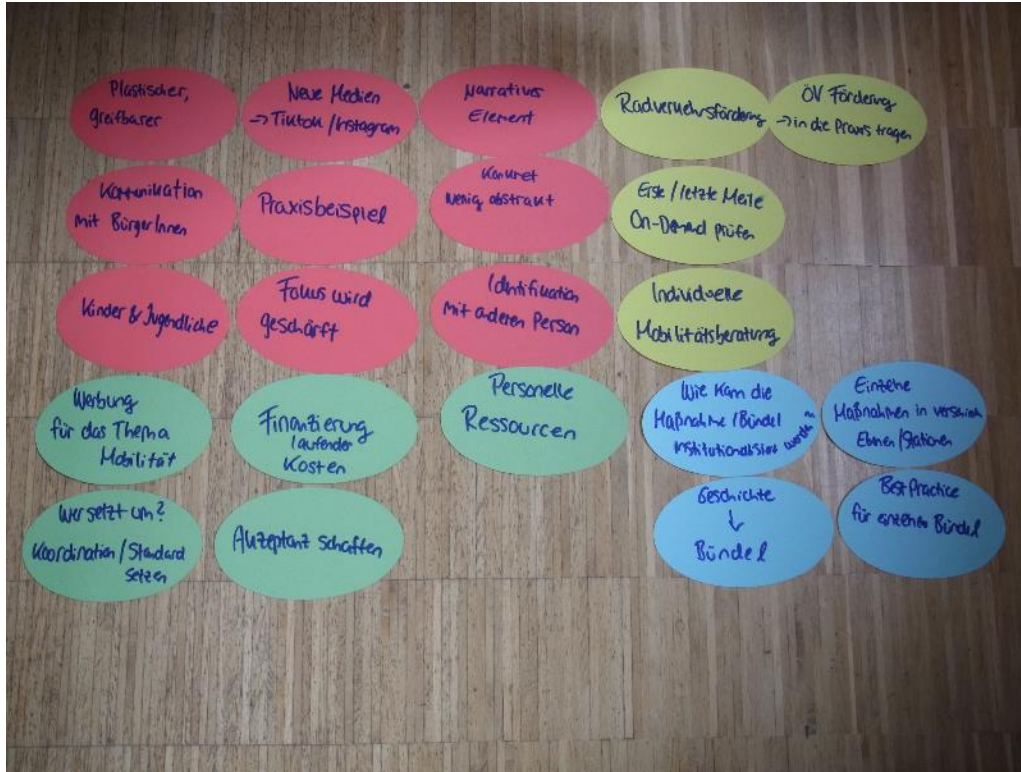 Plastischer,
greifbarer
Neue Medien
→ Tiktok / Instagram
Narratives
Element
Radverkehrsförderung
ÖV Förderung
→ in die Praxis tragen
Kommunikation
mit BürgerInnen
Praxisbeispiel
Konkret
Wenig abstrakt
Erste / letzte Meile
On-Demand prüfen
Kinder & Jugendliche
Fokus wird
geschärft
Identifikation
mit anderen Person
Individuelle
Mobilitätsberatung
Werbung
für das Thema
Mobilität
Finanzierung
laufender
Kosten
Personelle
Ressourcen
Wie kann die
Maßnahme / Bündel
institutionalisiert werden
Einzelne
Maßnahmen in versch.
Ebenen / Stationen
Wer setzt um?
Koordination / Standard
setzen
Akzeptanz schaffen
Geschichte
↓
Bündel
Best Practice
für einzelnen Bündel